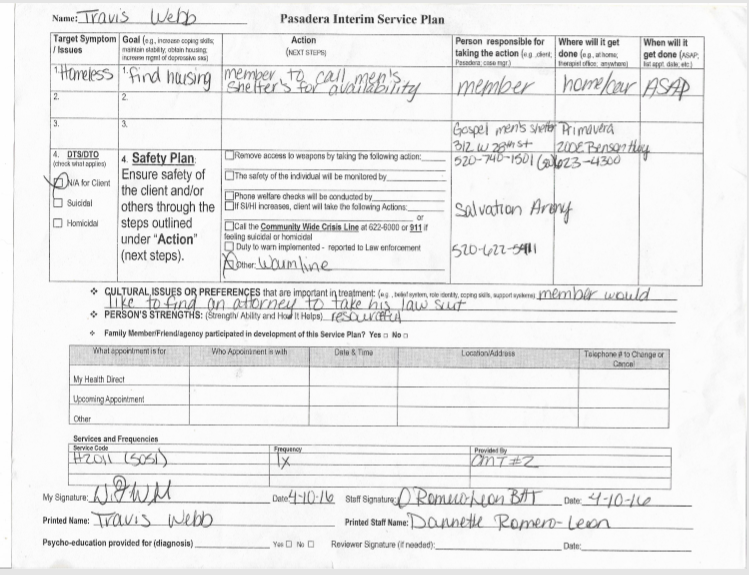 Name: Travis Webb
Pasadera Interim Service Plan
Target Symptom / Issues
Goal (e.g., increase coping skills, maintain stability, obtain housing, increase mgmt of depressive sxs)
Action (NEXT STEPS)
Person responsible for taking the action (e.g. client, Pasadera, case mgr.)
Where will it get done (e.g., at home, therapist office, anywhere)
When will it get done (ASAP, list appt. date, etc.)
1. Homeless
1. find housing
member to call men's shelter's for availability
member
home/car
ASAP
2.
2.
3.
3.
Gospel men's shelter
312 W 28th St
520-740-1501
Primavera
200 E Benson Hwy
623-4300
Salvation Army
520-622-5411
4. DTS/DTO
(check what applies)
N/A for Client
Suicidal
Homicidal
4. Safety Plan:
Ensure safety of
the client and/or
others through the
steps outlined
under "Action"
(next steps).
Remove access to weapons by taking the following action:
The safety of the individual will be monitored by
Phone welfare checks will be conducted by
If SI/HI increases, client will take the following Actions:
or
Call the Community Wide Crisis Line at 622-6000 or 911 if
feeling suicidal or homicidal
Duty to warn implemented - reported to Law enforcement
Other: Warmline
❖ CULTURAL ISSUES OR PREFERENCES that are important in treatment: (e.g., belief system, role identity, coping skills, support systems) member would
like to find an attorney to take his law suit
❖ PERSON'S STRENGTHS: (Strength/ Ability and How It Helps) resourceful
❖ Family Member/Friend/agency participated in development of this Service Plan? Yes □ No □
What appointment is for
Who Appointment is with
Date & Time
Location/Address
Telephone # to Change or Cancel
My Health Direct
Upcoming Appointment
Other
Services and Frequencies
Service Code
Frequency
Provided By
H2011 (5051)
1x
CMT #2
My Signature:
Date 4-10-16
Staff Signature: D Romero-Leon BHT
Date: 4-10-16
Printed Name: Travis Webb
Printed Staff Name: Dannette Romero-Leon
Psycho-education provided for (diagnosis)
Yes □ No □
Reviewer Signature (if needed):
Date: